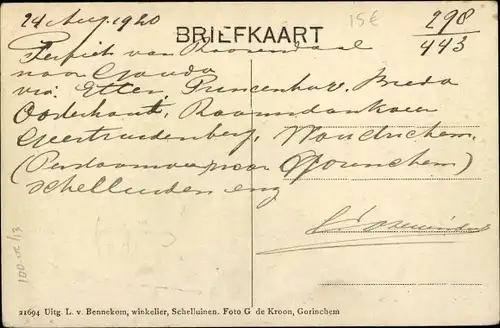 24 Aug. 1920
15€
298
443
BRIEFKAART
Per fiets van Roosendaal
naar Gouda
via Etten, Princenhage, Breda
Oosterhout, Raamsdonksveer
Geertruidenberg, Woudrichem.
(Per stoomveer naar Gorinchem)
Schelluinen enz
100-02/13
21694 Uitg L. v. Bennekom, winkelier, Schelluinen. Foto G de Kroon, Gorinchem